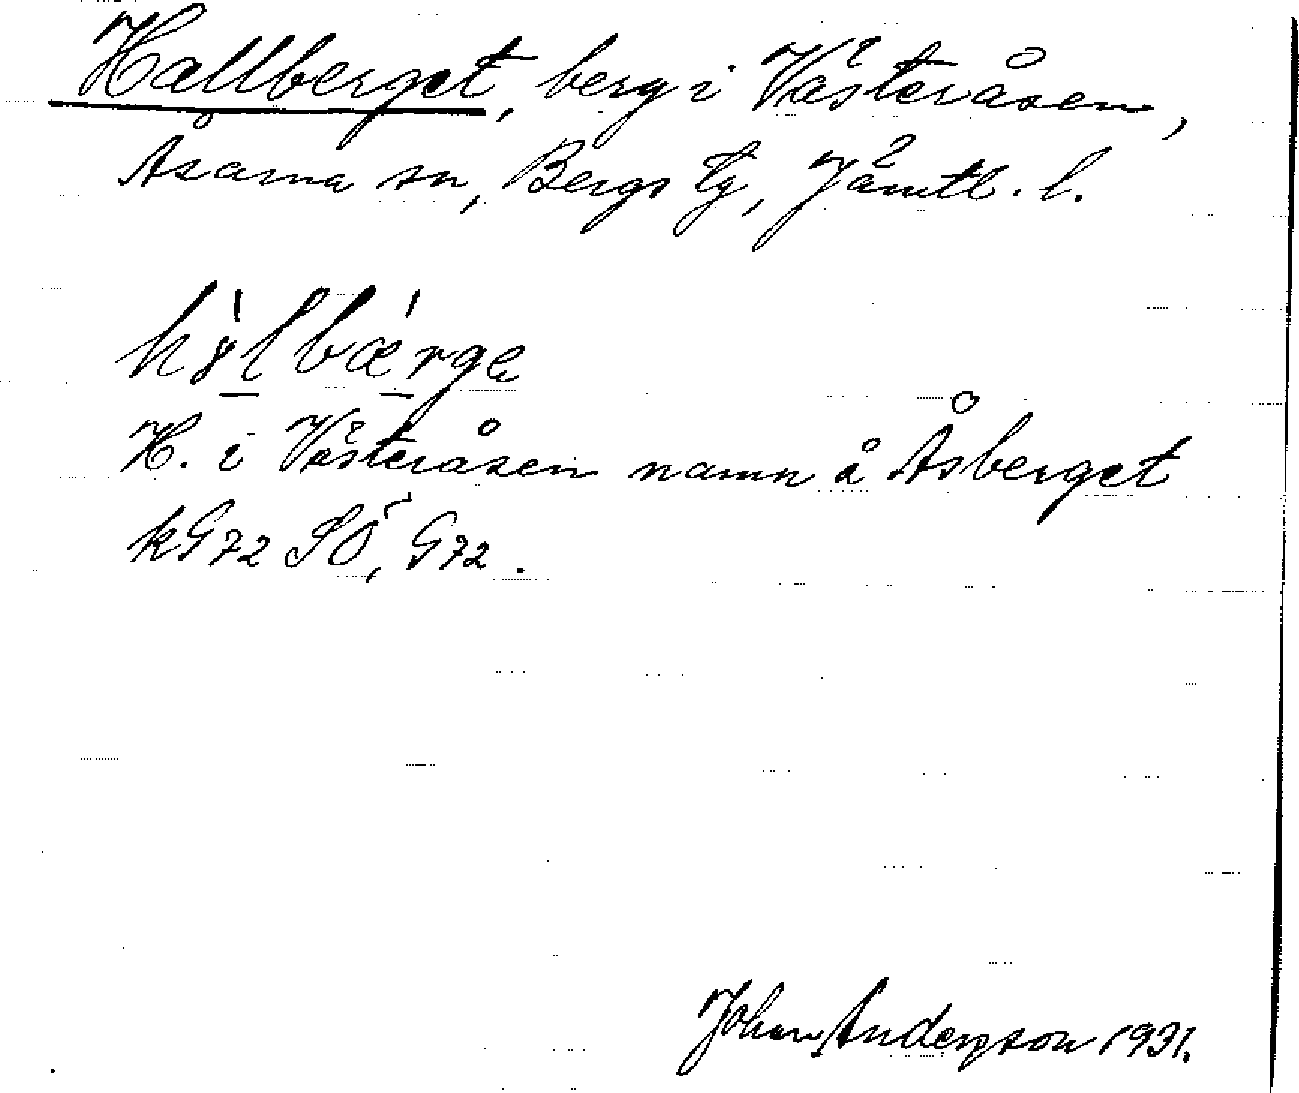 Hallberget, berg i Västeråsen,
Åsarna sn, Bergs tg, Jämtl. l.
H. i Västeråsen namn å Åsberget
kG72 SÖ, G72.
Johan Anderzson 1931.